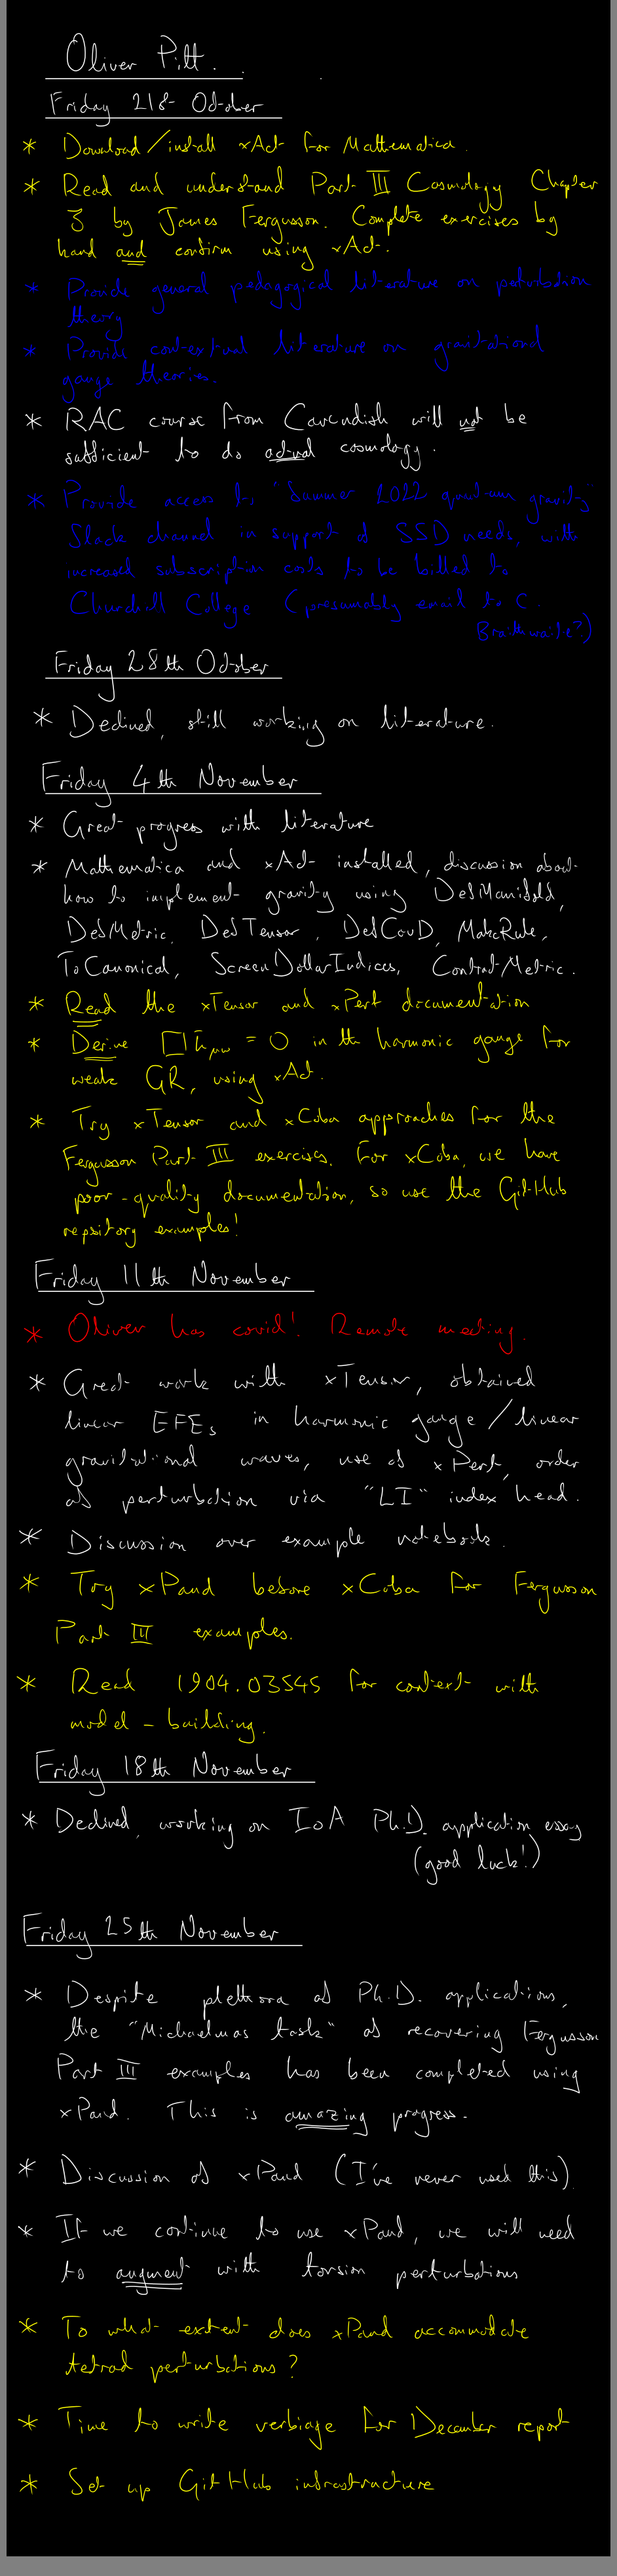 Oliver Pitt.
Friday 21st October
* Download/install xAct for Mathematica.
* Read and understand Part III Cosmology Chapter
3 by James Fergusson. Complete exercises by
hand and confirm using xAct.
* Provide general pedagogical literature on perturbation
theory
* Provide contextual literature on gravitational
gauge theories.
* RAC course from Cavendish will not be
sufficient to do actual cosmology.
* Provide access to "Summer 2022 quantum gravity"
Slack channel in support of SSD needs, with
increased subscription costs to be billed to
Churchill College (presumably email to C.
Braithwaite?)
Friday 28th October
* Declined, still working on literature.
Friday 4th November
* Great progress with literature
* Mathematica and xAct installed, discussion about
how to implement gravity using DefManifold,
DefMetric, DefTensor, DefCovD, MakeRule,
ToCanonical, ScreenDollarIndices, ContractMetric.
* Read the xTensor and xPert documentation
* Derive □h̄μν = 0 in the harmonic gauge for
weak GR, using xAct.
* Try xTensor and xCoba approaches for the
Fergusson Part III exercises. For xCoba, we have
poor-quality documentation, so use the GitHub
repository examples!
Friday 11th November
* Oliver has covid! Remote meeting.
* Great work with xTensor, obtained
linear EFEs in harmonic gauge/linear
gravitational waves, use of xPert, order
of perturbation via "LI" index head.
* Discussion over example notebook.
* Try xPand before xCoba for Fergusson
Part III examples.
* Read 1904.03545 for context with
model-building.
Friday 18th November
* Declined, working on IoA Ph.D. application essay
(good luck!)
Friday 25th November
* Despite plethora of Ph.D. applications,
the "Michaelmas task" of recovering Fergusson
Part III examples has been completed using
xPand. This is amazing progress.
* Discussion of xPand (I've never used this).
* If we continue to use xPand, we will need
to augment with torsion perturbations
* To what extent does xPand accommodate
tetrad perturbations?
* Time to write verbiage for December report
* Set up GitHub infrastructure